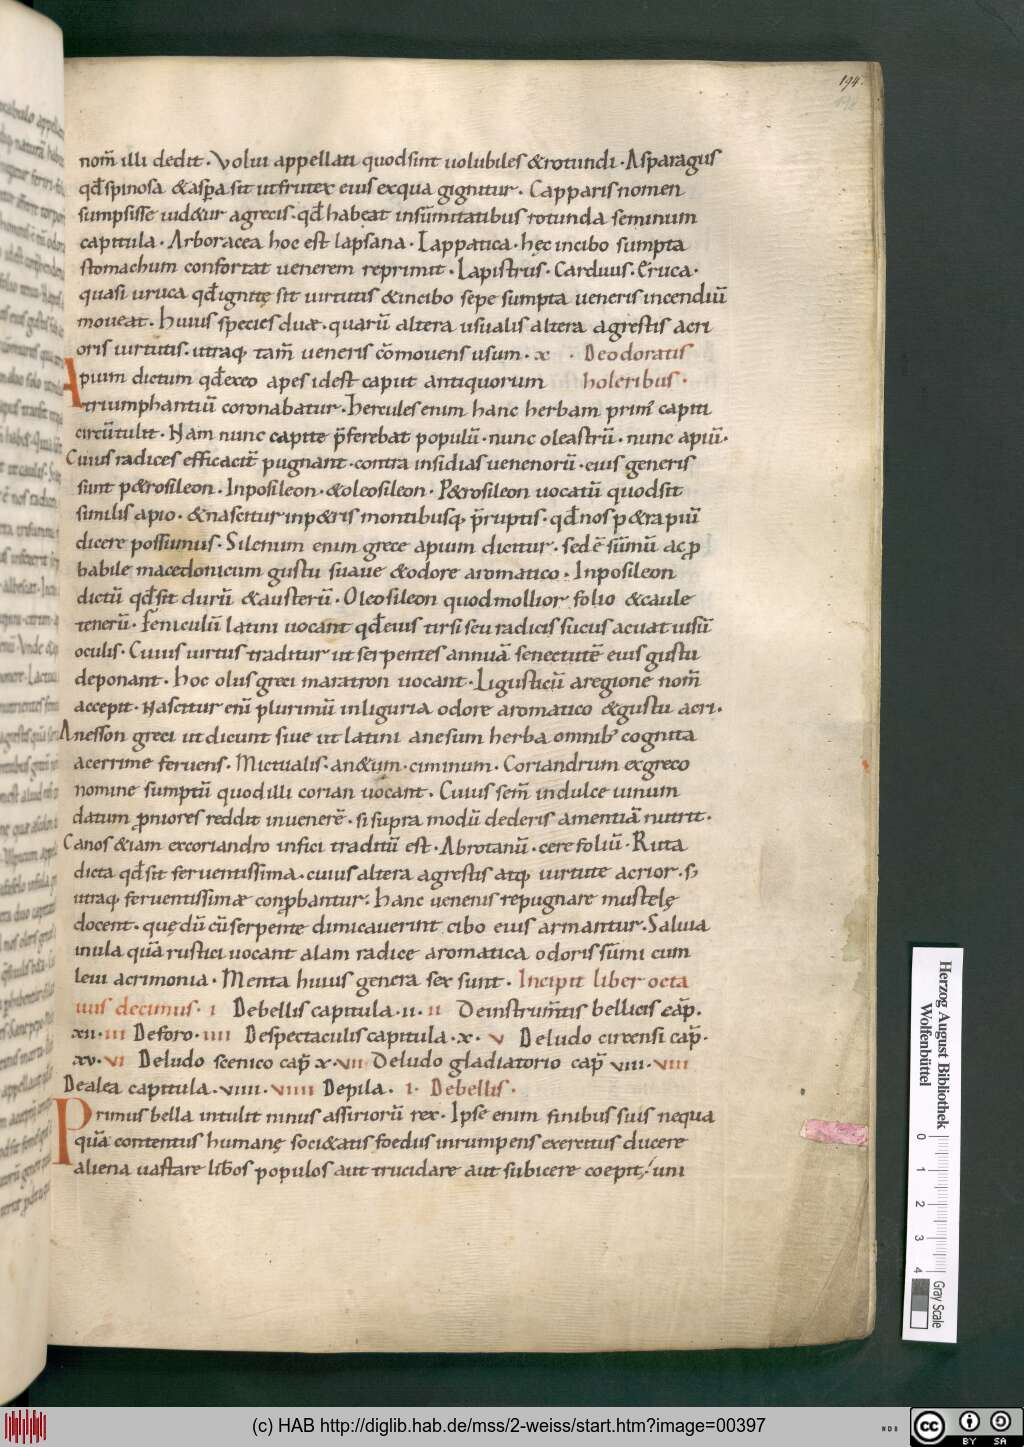 194.
nom̄ illi dedit. Volui appellati quod sint uolubiles & rotundi. Asparagus
qđ spinosa & asꝑa sit ut frutex eius ex qua gignitur. Capparis nomen
sumpsisse uid&ur a grecis. qđ habeat insūmitatibus rotunda seminum
capitula. Arboracea hoc est lapsana. Lappatica. hęc in cibo sumpta
stomachum confortat uenerem reprimit. Lapistrus. Carduus. Eruca.
quasi uruca qđ ignitę sit uirtutis & in cibo sepe sumpta ueneris incendiū
moueat. Huius species duæ. quarū altera usualis altera agrestis acri
oris uirtutis. utraq; tam̄ ueneris cōmouens usum. x . De odoratis
Apium dictum qđ ex eo apes idest caput antiquorum holeribus.
triumphantiū coronabatur. Hercules enim hanc herbam prim' capiti
circūtulit. Nam nunc capite p̄ferebat populū. nunc oleastrū. nunc apiū.
Cuius radices efficacit̄ pugnant. contra insidias uenenorū. eius generis
sunt p&rosileon. Inposileon. & oleosileon. P&rosileon uocatū quod sit
similis apio. & nascitur in p&ris montibusq; p̄ruptis. qđ nos p&rapiū
dicere possumus. Silenum enim grece apium dicitur. sed ē sūmū ac ꝓ
babile macedonicum gustu suaue & odore aromatico. Inposileon
dictū qđ sit durū & austerū. Oleosileon quod mollior folio & caule
tenerū. Feniculū latini uocant qđ eius tirsi seu radicis sucus acuat uisū
oculis. Cuius uirtus traditur ut serpentes annuā senectutē eius gustu
deponant. hoc olus greci maratron uocant. Ligusticū a regione nom̄
accepit. Nascitur eni plurimū in liguria odore aromatico & gustu acri.
Anesson greci ut dicunt siue ut latini anesum herba omnib; cognita
acerrime feruens. Mictualis. an&um. ciminum. Coriandrum ex greco
nomine sumptū quod illi corian uocant. Cuius sem̄ in dulce uinum
datum ꝓniores reddit in uenerē. si supra modū dederis amentiā nutrit.
Canos &iam ex coriandro infici traditū est. Abrotanū. cerefoliū. Ruta
dicta qđ sit feruentissima. cuius altera agrestis atq; uirtute acrior. s;
utraq; feruentissimæ conꝓbantur. Hanc uenenis repugnare mustelę
docent. quę dū cū serpente dimicauerint cibo eius armantur. Saluia
inula quā rustici uocant alam radice aromatica odoris sūmi cum
leui acrimonia. Menta huius genera sex sunt. Incipit liber octa
uus decimus. I De bellis capitula. ii. II De instrum̄tis bellicis cap̄.
xii. III De foro. IIII De spectaculis capitula. x. V De ludo circensi cap̄.
xv. VI De ludo scenico cap̄ x. VII De ludo gladiatorio cap̄ viii. VIII
De alea capitula. viiii. VIIII De pila. I. De bellis.
Primus bella intulit ninus assiriorū rex. Ipse enim finibus suis nequa
quā contentus humanę soci&atis foedus inrumpens exercitus ducere
aliena uastare liƀos populos aut trucidare aut subicere coepit. uni
Herzog August Bibliothek
Wolfenbüttel
0 1 2 3 4
Gray Scale
(c) HAB http://diglib.hab.de/mss/2-weiss/start.htm?image=00397
WDB
cc BY SA